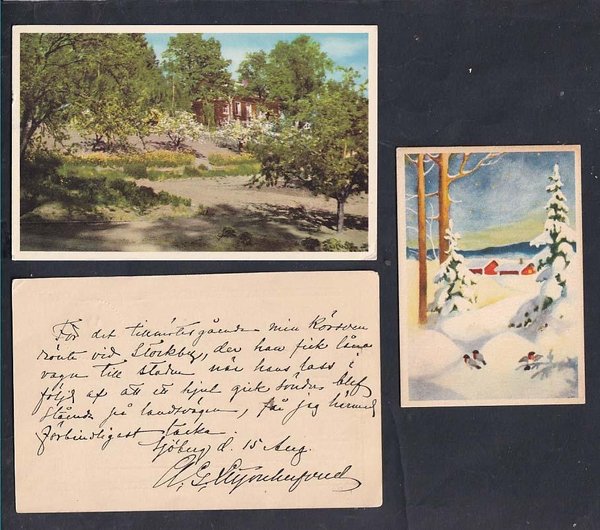 För det tillmötesgående min Körsven
rönte vid Stockby, der han fick låna
vagn till staden när hans lass i
följd af att ett hjul gick sönder blef
stående på landsvägen, får jag härmed
förbindligast tacka.
Sjöberg d. 15 Aug.